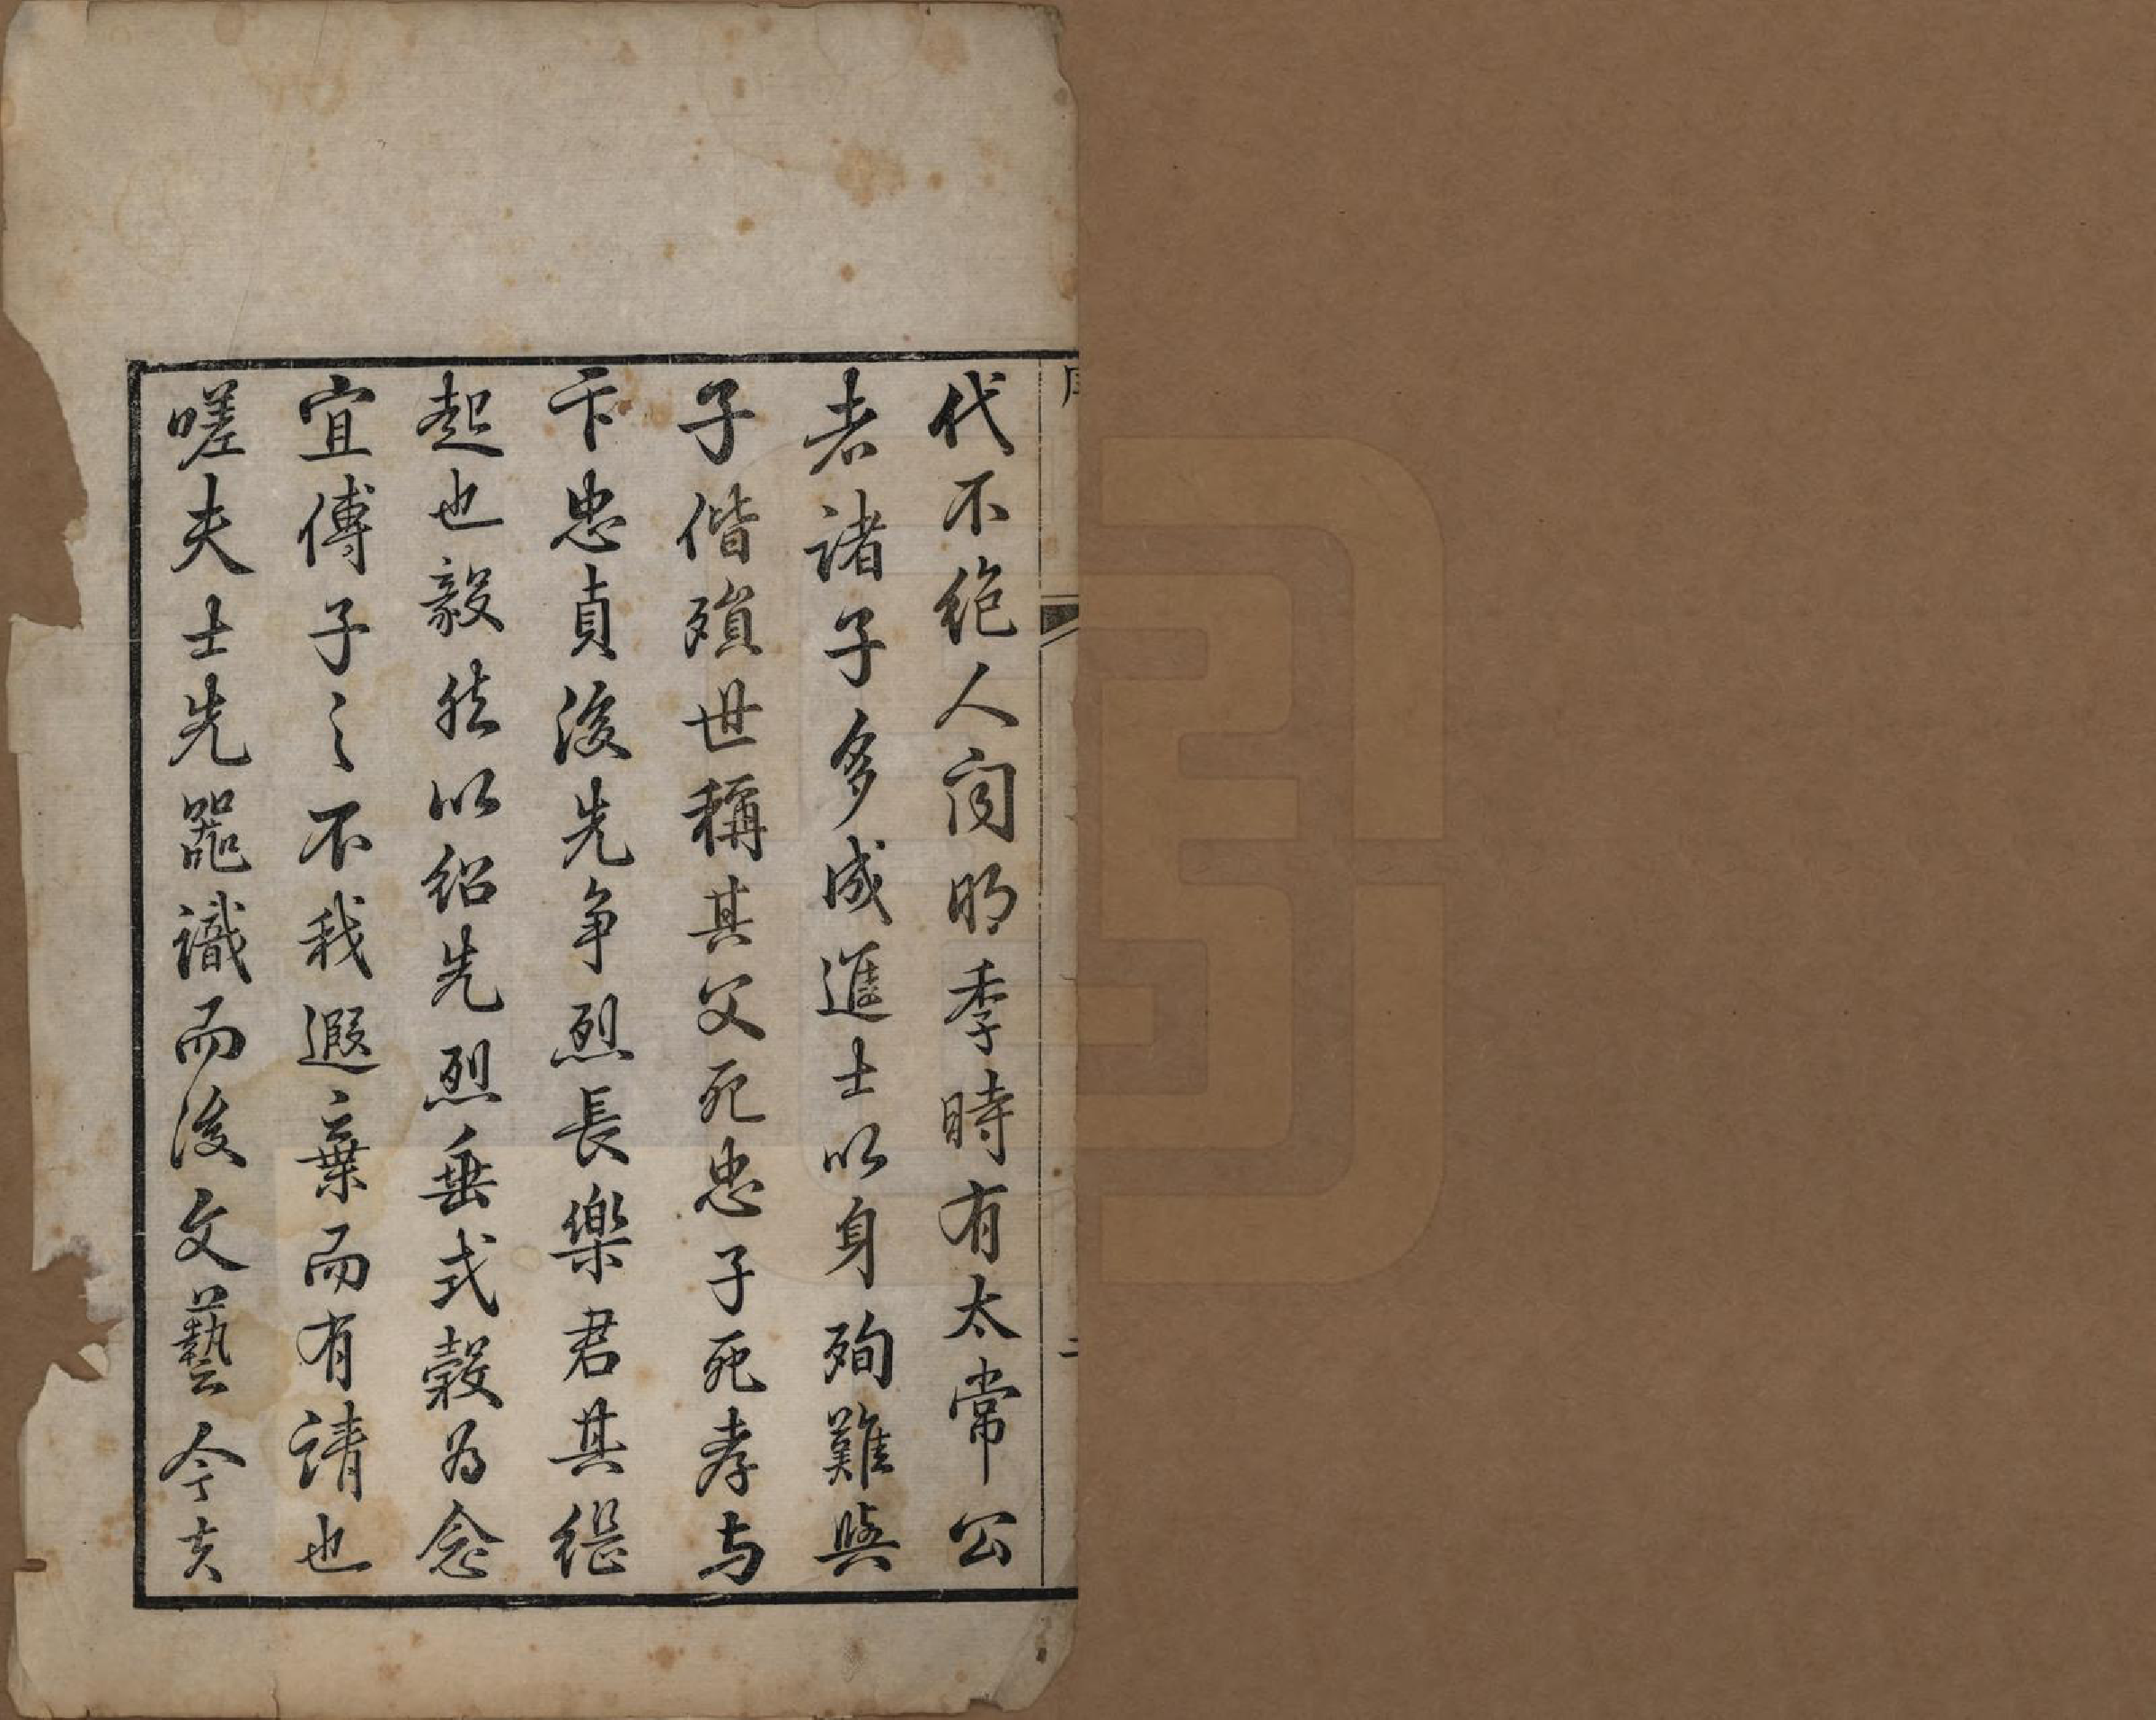 代不絕人間明季時有太常公
者諸子多成進士以身殉難與
子偕殞世稱其父死忠子死孝与
卞忠貞後先争烈長樂君其继
起也毅然以紹先烈垂式穀為念
宜傅子之不我遐棄而有請也
嗟夫士先器識而後文藝今夫
序
二